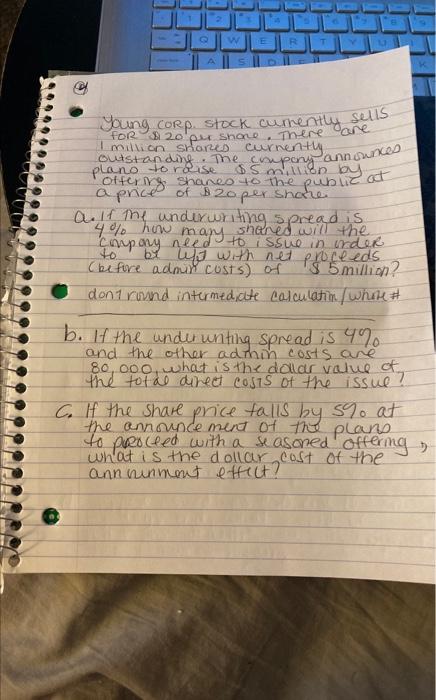 Q W E R T Y U
A S D K
Young Corp. stock currently sells
for $20 per share. There are
1 million shares currently
outstanding. The company announces
plans to raise $5 million by
offering shares to the public at
a price of $20 per share.
a. If the underwriting spread is
4% how many shares will the
company need to issue in order
to be left with net proceeds
(before admin costs) of $5 million?
don't round intermediate calculation/whole #
b. If the underwriting spread is 4%
and the other admin costs are
80,000, what is the dollar value of
the total direct costs of the issue?
C. If the share price falls by 5% at
the announcement of the plans
to proceed with a seasoned offering,
what is the dollar cost of the
announment effect?